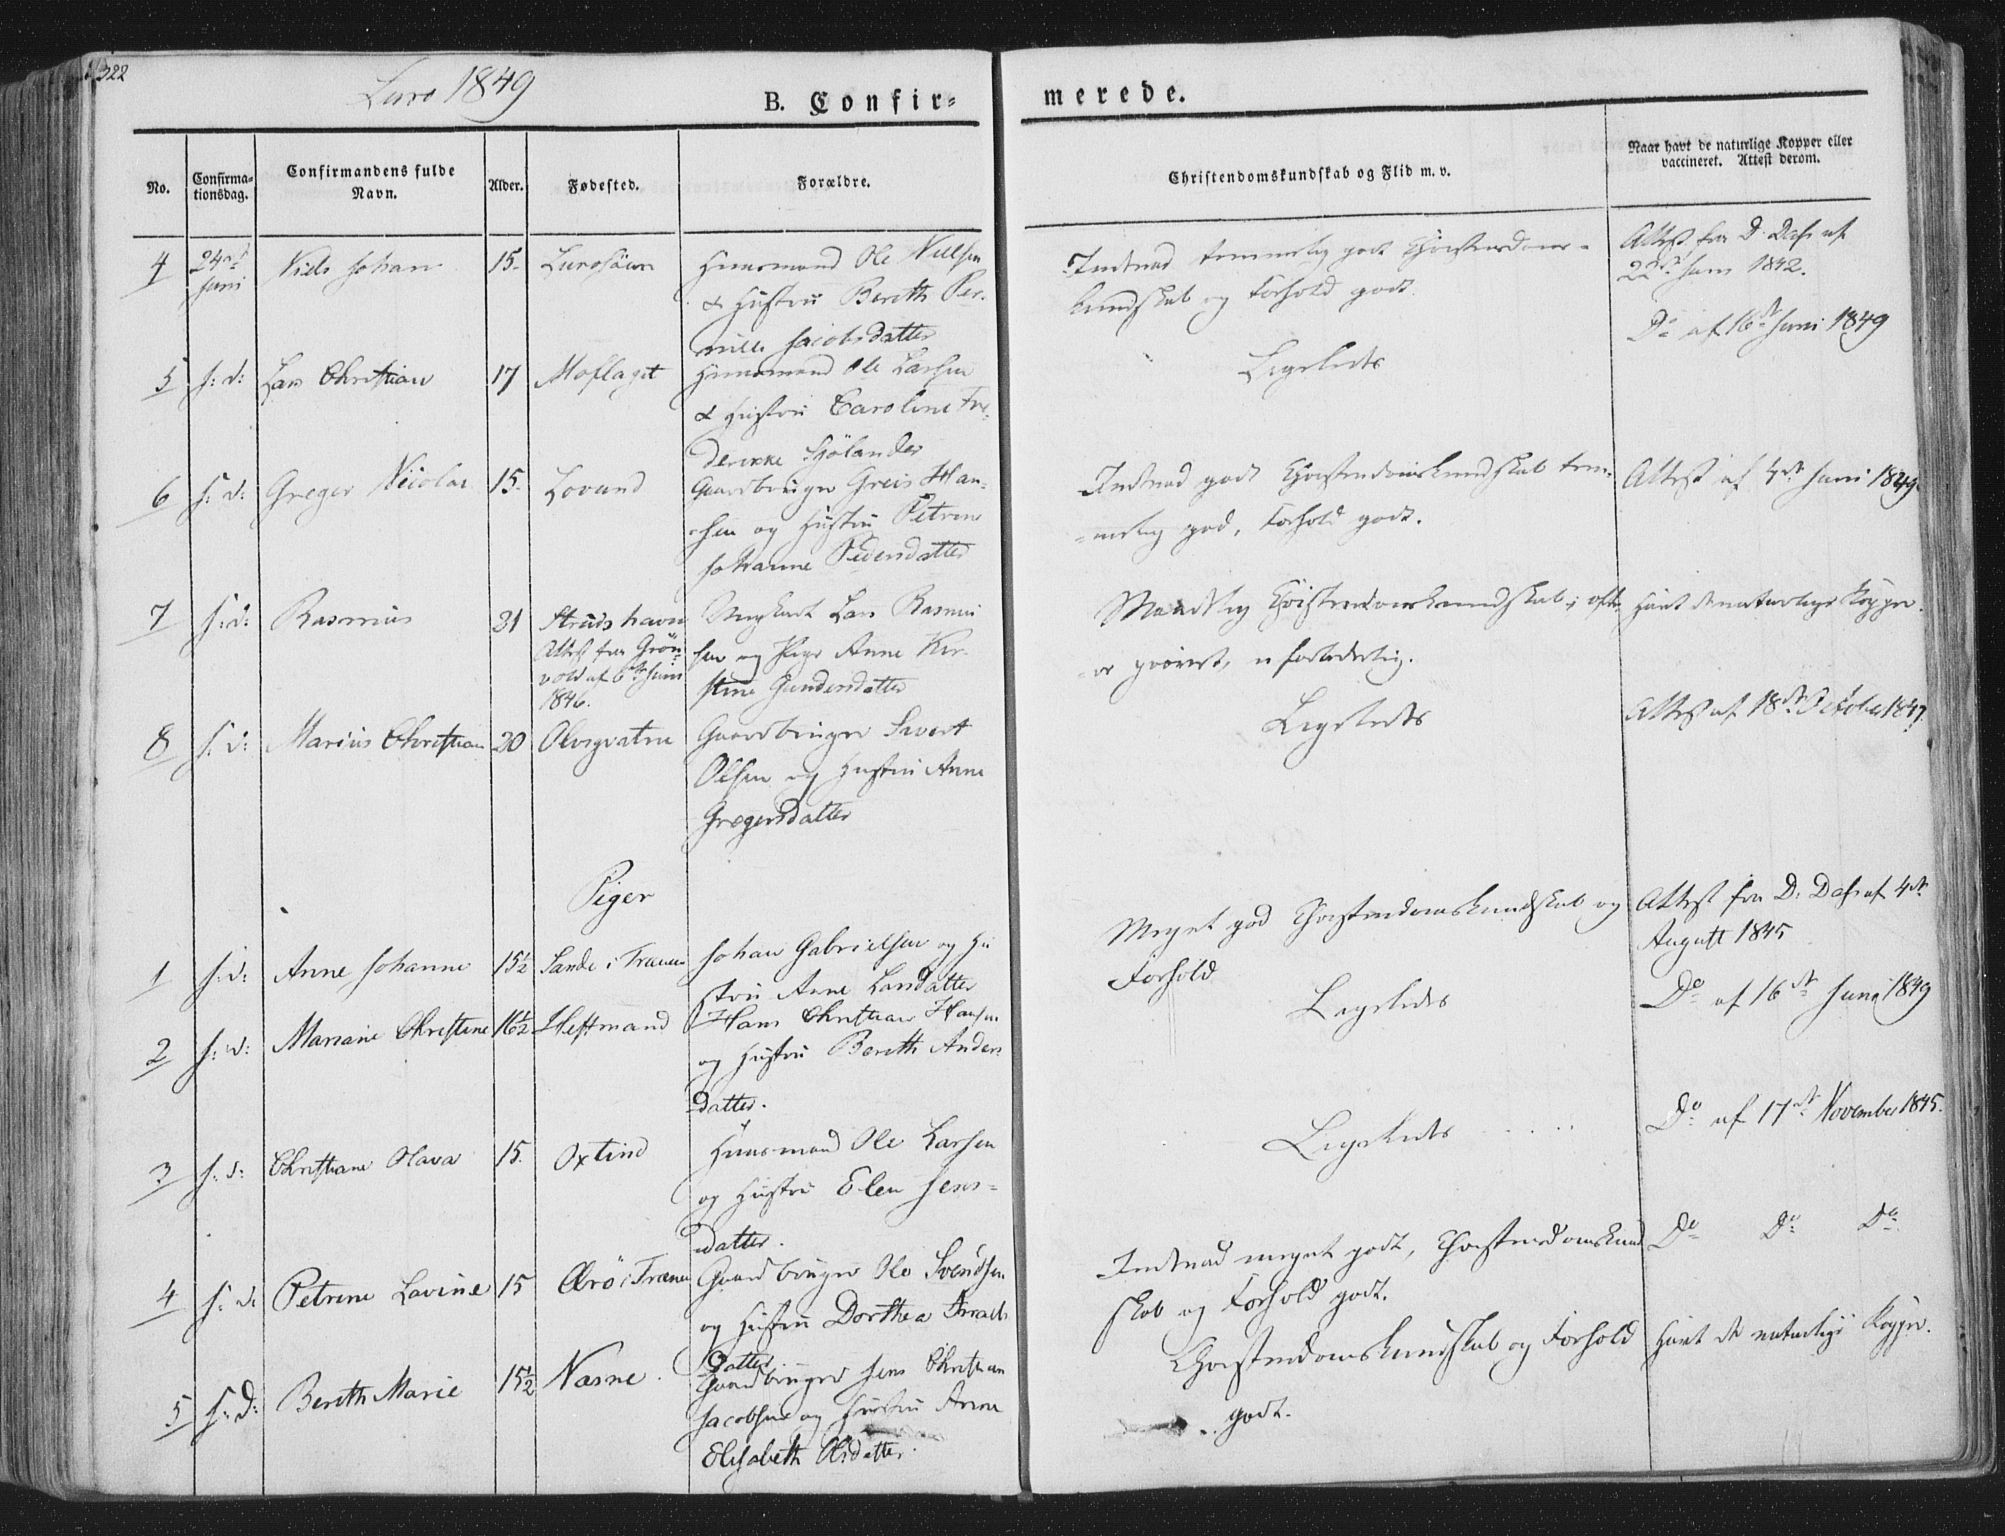 322
Lurø 1849
B. Confir-
merede.
No.
Confirma-
tionsdag.
Confirmandens fulde
Navn.
Alder.
Fødested.
Forældre.
Christendomskundskab og Flid m. v.
Naar havt de naturlige Kopper eller
vaccineret. Attest derom.
4 24de Juni Niels Johan 15. Lurosöen Huusmand Ole Nielsen
& Hustru Bereth Per-
nille Jacobsdatter
Indenad temmelig godt Christendoms-
kundskab og Forhold godt
Attest fra D. Dass af
22de Juni 1842.
5 s: d: Lars Christian 17 Moflaget Huusmand Ole Larsen
& Hustru Caroline Fre-
derikke Sjölander
Ligeledes
Do af 16de Juni 1849
6 s: d: Greger Nicolai 15. Lovund Gaardbruger Greis Han-
sen og Hustru Petrine
Johanne Pedersdatter
Indenad godt Christendomskundskab tem-
melig god, Forhold godt.
Attest af 4de Juni 1849.
7 s: d: Rasmus 21 Strudshavn
Attest fra Grön-
vold af 6te Juni
1846.
Ungkarl Lars Rasmu
sen og Pige Anne Kir-
stine Gundersdatter
Maadelig Christendomskundskab; ofte
Havt de naturlige Kopper.
8 s: d: Marius Christian 20 Olvigvatnu Gaardbruger Sivert
Olsen og Hustru Anne
Gregersdatter
Ligeledes
Attest af 18de October 1847.
Piger
1 s: d: Anne Johanne 15½ Sande i Trænen Johan Gabrielsen og Hu
stru Anne Larsdatter
Meget god Christendomskundskab og
Forhold
Attest fra D. Dass af 4de
August 1845
2 s: d: Mariane Christine 16½ Hestmand Hans Christian Hansen
og Hustru Bereth Anders
datter.
Ligeledes
Do af 16de Juni 1849
3 s: d: Christiane Olava 15. Oxtind Huusmand Ole Larsen
og Hustru Elen Jens-
datter.
Ligeledes
Do af 17de November 1845.
4 s: d: Petrine Lavine 15 i Trænen Gaardbruger Ole Svendsen
og Hustru Dorthea
datter.
Indenad meget godt, Christendomskund
skab og Forhold godt.
Do Do Do
5 s: d: Bereth Marie 15½ Nasne. Gaardbruger Jens Christian
Jacobsen og Hustru Anne
Elisabeth Olsdatter.
Christendomskundskab og Forhold
godt.
Havt de naturlige Kopper.